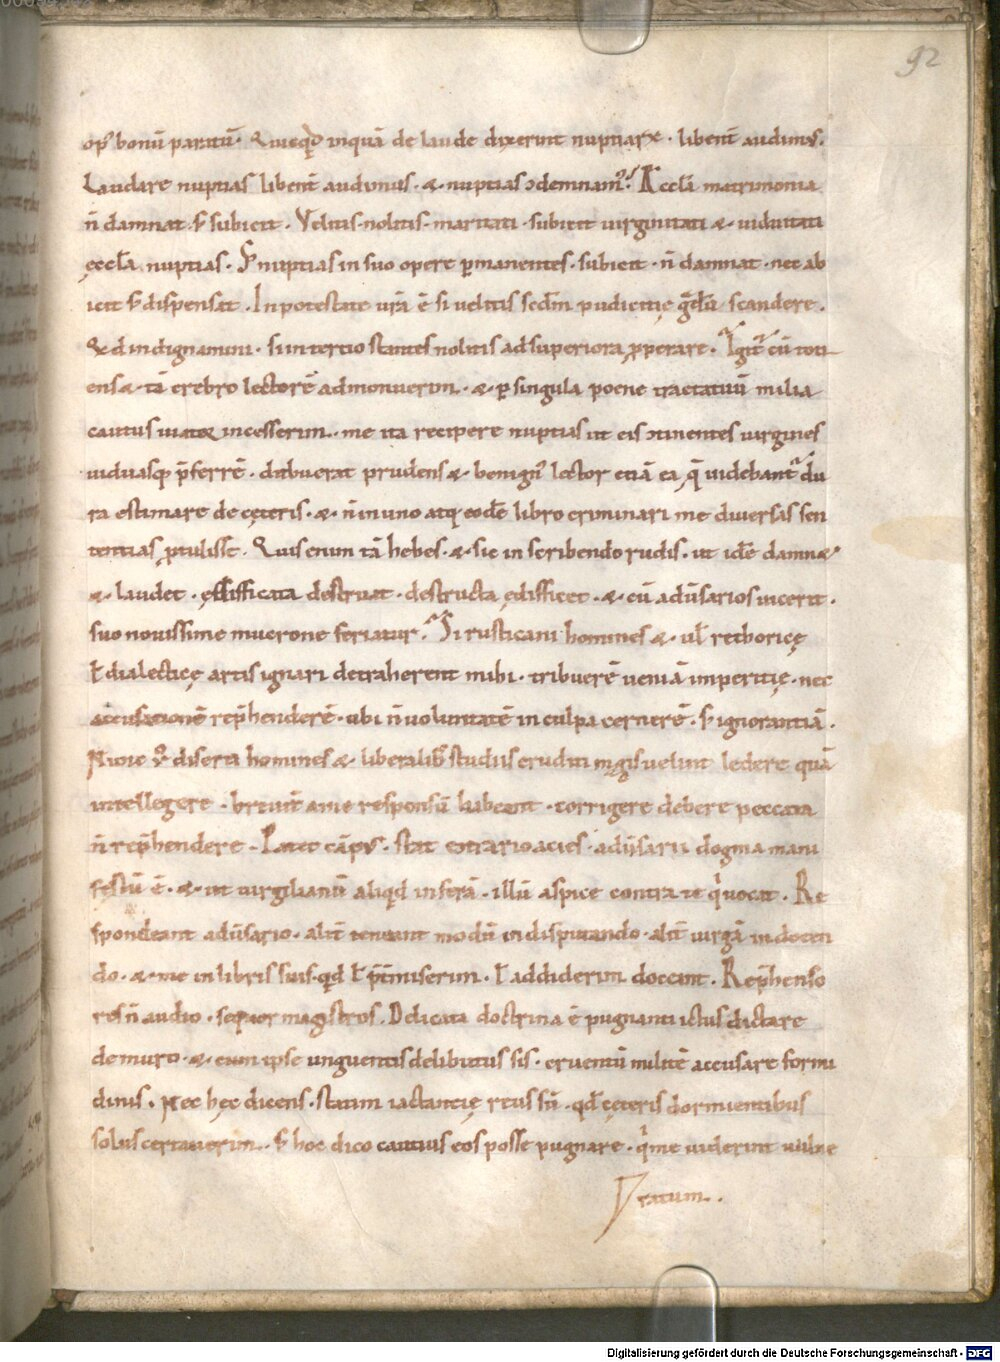 92
op' bonū parituͬ. Quicqͥd inquā de laude dixerint nuptiarꝝ. libent̄ audimꝰ.
Laudare nuptias libent̄ audimus. & nuptias ↄdemnam'? Æccłā matrimonia
n̄ damnat. s; subicit. Velitis nolitis mariti. subicit uirginitati & uiduitati
ęccłā nuptias. S; nuptias in suo opere ꝑmanentes. subicit. n̄ damnat. nec ab
icit s; dispensat. In potestate urā ē si uelitis secđm pudicitię gđū scandere.
Qđ indignamini. si in tercio stantes nolitis ad superiora ꝓperare. Igit̃ cū toti
ens & tā crebro lectorē admonuerim. & ꝑ singula poene tractatuū milia
cautus uiator incesserim. me ita recipere nuptias ut eis ↄtinentes uirgines
uiduasq; p̄ferrē. debuerat prudens & benign' lector etiā ea, q̄ uidebant̃ du
ra estimare de cęteris. & n̄ in uno atq; eođe libro criminari me diuersas sen
tentias ꝓtulisse. Quis enim tā hebes. & sic in scribendo rudis. ut iđe damn&
& laudet. ędifficata destruat. destructa ędifficet. & cū adūsarios uicerit.
suo nouissime mucrone feriatur? Si rusticani homines & uł rethoricę
ł dialecticę artis ignari detraherent mihi. tribuerē ueniā imperitię. nec
accusationē rep̄henderē. ubi n̄ uoluntatē in culpa cernerē. s; ignorantiā.
Nunc ů diserti homines & liberalib; studiis eruditi magis uelint ledere quā
intellegere. breuit̄ a me responsū habeant. corrigere debere peccata
n̄ rep̄hendere. Patet cāpꝰ. stat contrario acies. adūsarii dogma mani
festū ē. & ut uirgilianū aliqͥd inserā. illū aspice contra te qͥ uocat. Re
spondeant adūsario. alit̄ teneant modū in disputando. alit̄ uirgā in docen
do. & me in libris suis qͥd ł p̄tmiserim. ł addiderim doceant. Rep̄henso
res n̄ audio. sequor magistros. Delicata doctrina ē pugnanti ictus dictare
de muro. & cum ipse unguentis delibutus sis. cruentū militē accusare formi
dinis. Nec hęc dicens. statim iactantię reus sū. qđ cęteris dormientibus
solus certauerim. s; hoc dico cautius eos posse pugnare. qͥ me uiderint uulne
ratum.
Digitalisierung gefördert durch die Deutsche Forschungsgemeinschaft - DFG